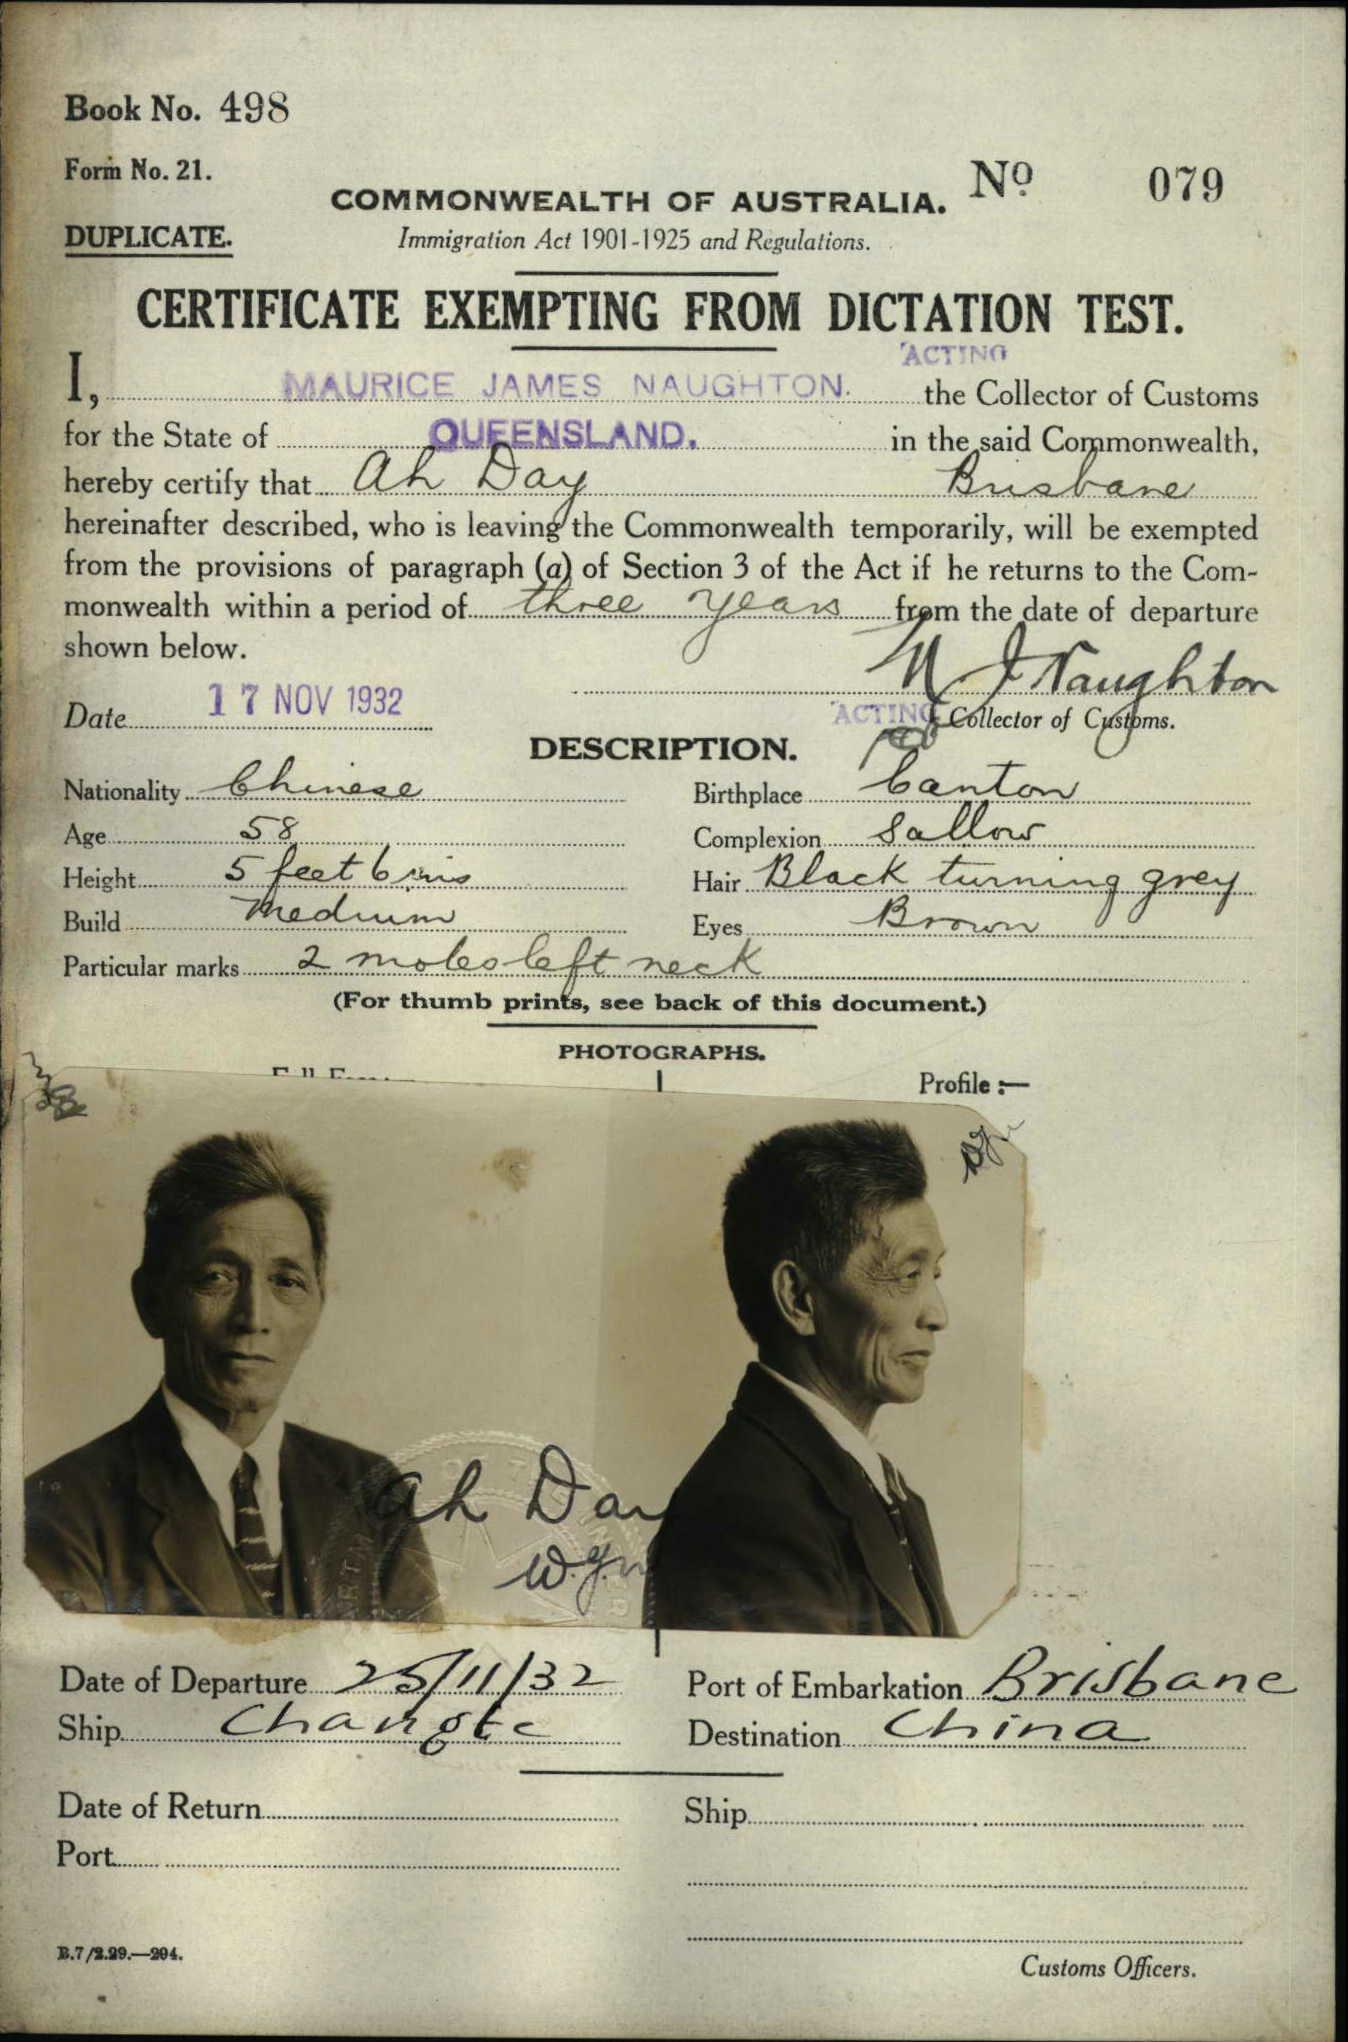 Book No. 498
Form No. 21.
No 079
COMMONWEALTH OF AUSTRALIA.
DUPLICATE.
Immigration Act 1901-1925 and Regulations.
CERTIFICATE EXEMPTING FROM DICTATION TEST.
ACTING
I, MAURICE JAMES NAUGHTON. the Collector of Customs
for the State of QUEENSLAND. in the said Commonwealth,
hereby certify that Ah Day Brisbane
hereinafter described, who is leaving the Commonwealth temporarily, will be exempted
from the provisions of paragraph (a) of Section 3 of the Act if he returns to the Com-
monwealth within a period of three years from the date of departure
shown below.
M J Naughton
Date 17 NOV 1932
ACTING Collector of Customs.
DESCRIPTION.
Nationality Chinese Birthplace Canton
Age 58 Complexion Sallow
Height 5 feet 6 ins Hair Black turning grey
Build Medium Eyes Brown
Particular marks 2 moles left neck
(For thumb prints, see back of this document.)
PHOTOGRAPHS.
Profile :—
Ah Day
Date of Departure 25/11/32 Port of Embarkation Brisbane
Ship Changte Destination China
Date of Return Ship
Port
B.7/2.29.—294.
Customs Officers.